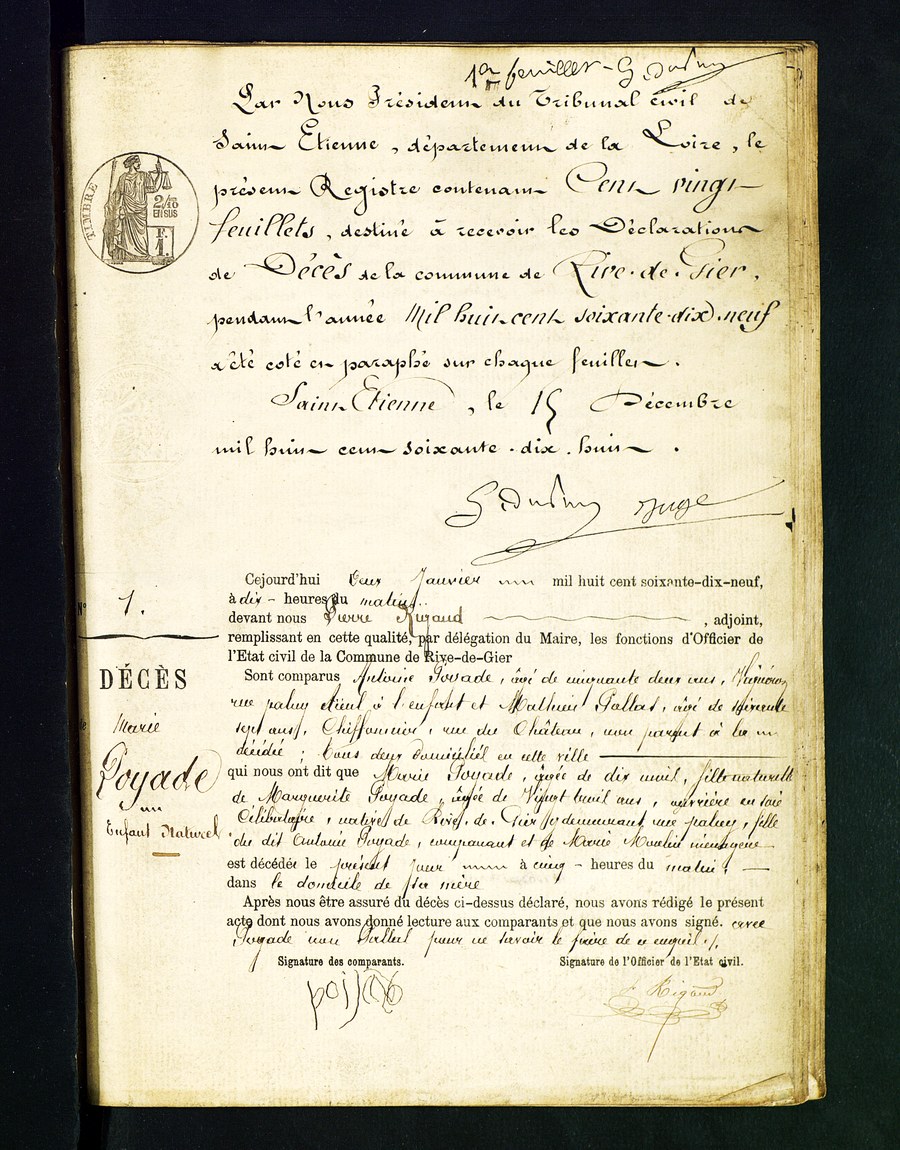 1er feuillet - G. Dudmy
Par Nous Président du Tribunal civil de
Saint Etienne, département de la Loire, le
présent Registre contenant Cent vingt
feuillets, destiné à recevoir les Déclarations
de Décès de la commune de Rive-de-Gier,
pendant l'année Mil huit cent soixante-dix-neuf
a été coté et paraphé sur chaque feuillet.
Saint Etienne, le 15 Décembre
mil huit cent soixante-dix-huit.
juge
TIMBRE
2/10
EN SUS
F.
1.
N° 1.
DÉCÈS
de
Marie
Poyade
Enfant Naturel
Cejourd'hui deux Janvier mil huit cent soixante-dix-neuf,
à dix - heures du matin
devant nous Pierre Rigaud, adjoint,
remplissant en cette qualité, par délégation du Maire, les fonctions d'Officier de
l'Etat civil de la Commune de Rive-de-Gier
Sont comparus Antoine Poyade, âgé de cinquante deux ans,
rue paluy aïeul à l'enfant et Mathieu Pallat, âgé de soixante
sept ans, Chiffonnier, rue du Château, non parent à la
décédée ; tous deux domiciliés en cette ville
qui nous ont dit que Marie Poyade, âgée de dix mois, fille naturelle
de Marguerite Poyade, âgée de Vingt huit ans, ouvrière en soie
Célibataire, native de Rive-de-Gier y demeurant, rue paluy, fille
du dit Antoine Poyade, comparant et de Marie Moulin ménagère
est décédée le présent jour à cinq - heures du matin,
dans le domicile de sa mère
Après nous être assuré du décès ci-dessus déclaré, nous avons rédigé le présent
acte dont nous avons donné lecture aux comparants et que nous avons signé. avec
Poyade non Pallat pour ne savoir le faire de ce enquis ./.
Signature des comparants. Signature de l'Officier de l'Etat civil.
poijade
P. Rigaud